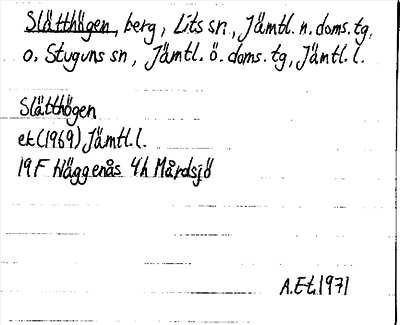 Slätthögen, berg, Lits sn., Jämtl. n. doms. tg.
o. Stuguns sn, Jämtl. ö. doms. tg, Jämtl. l.
Slätthögen
ek (1969) Jämtl. l.
19F Häggenås 4h Mårdsjö
A.Et. 1971